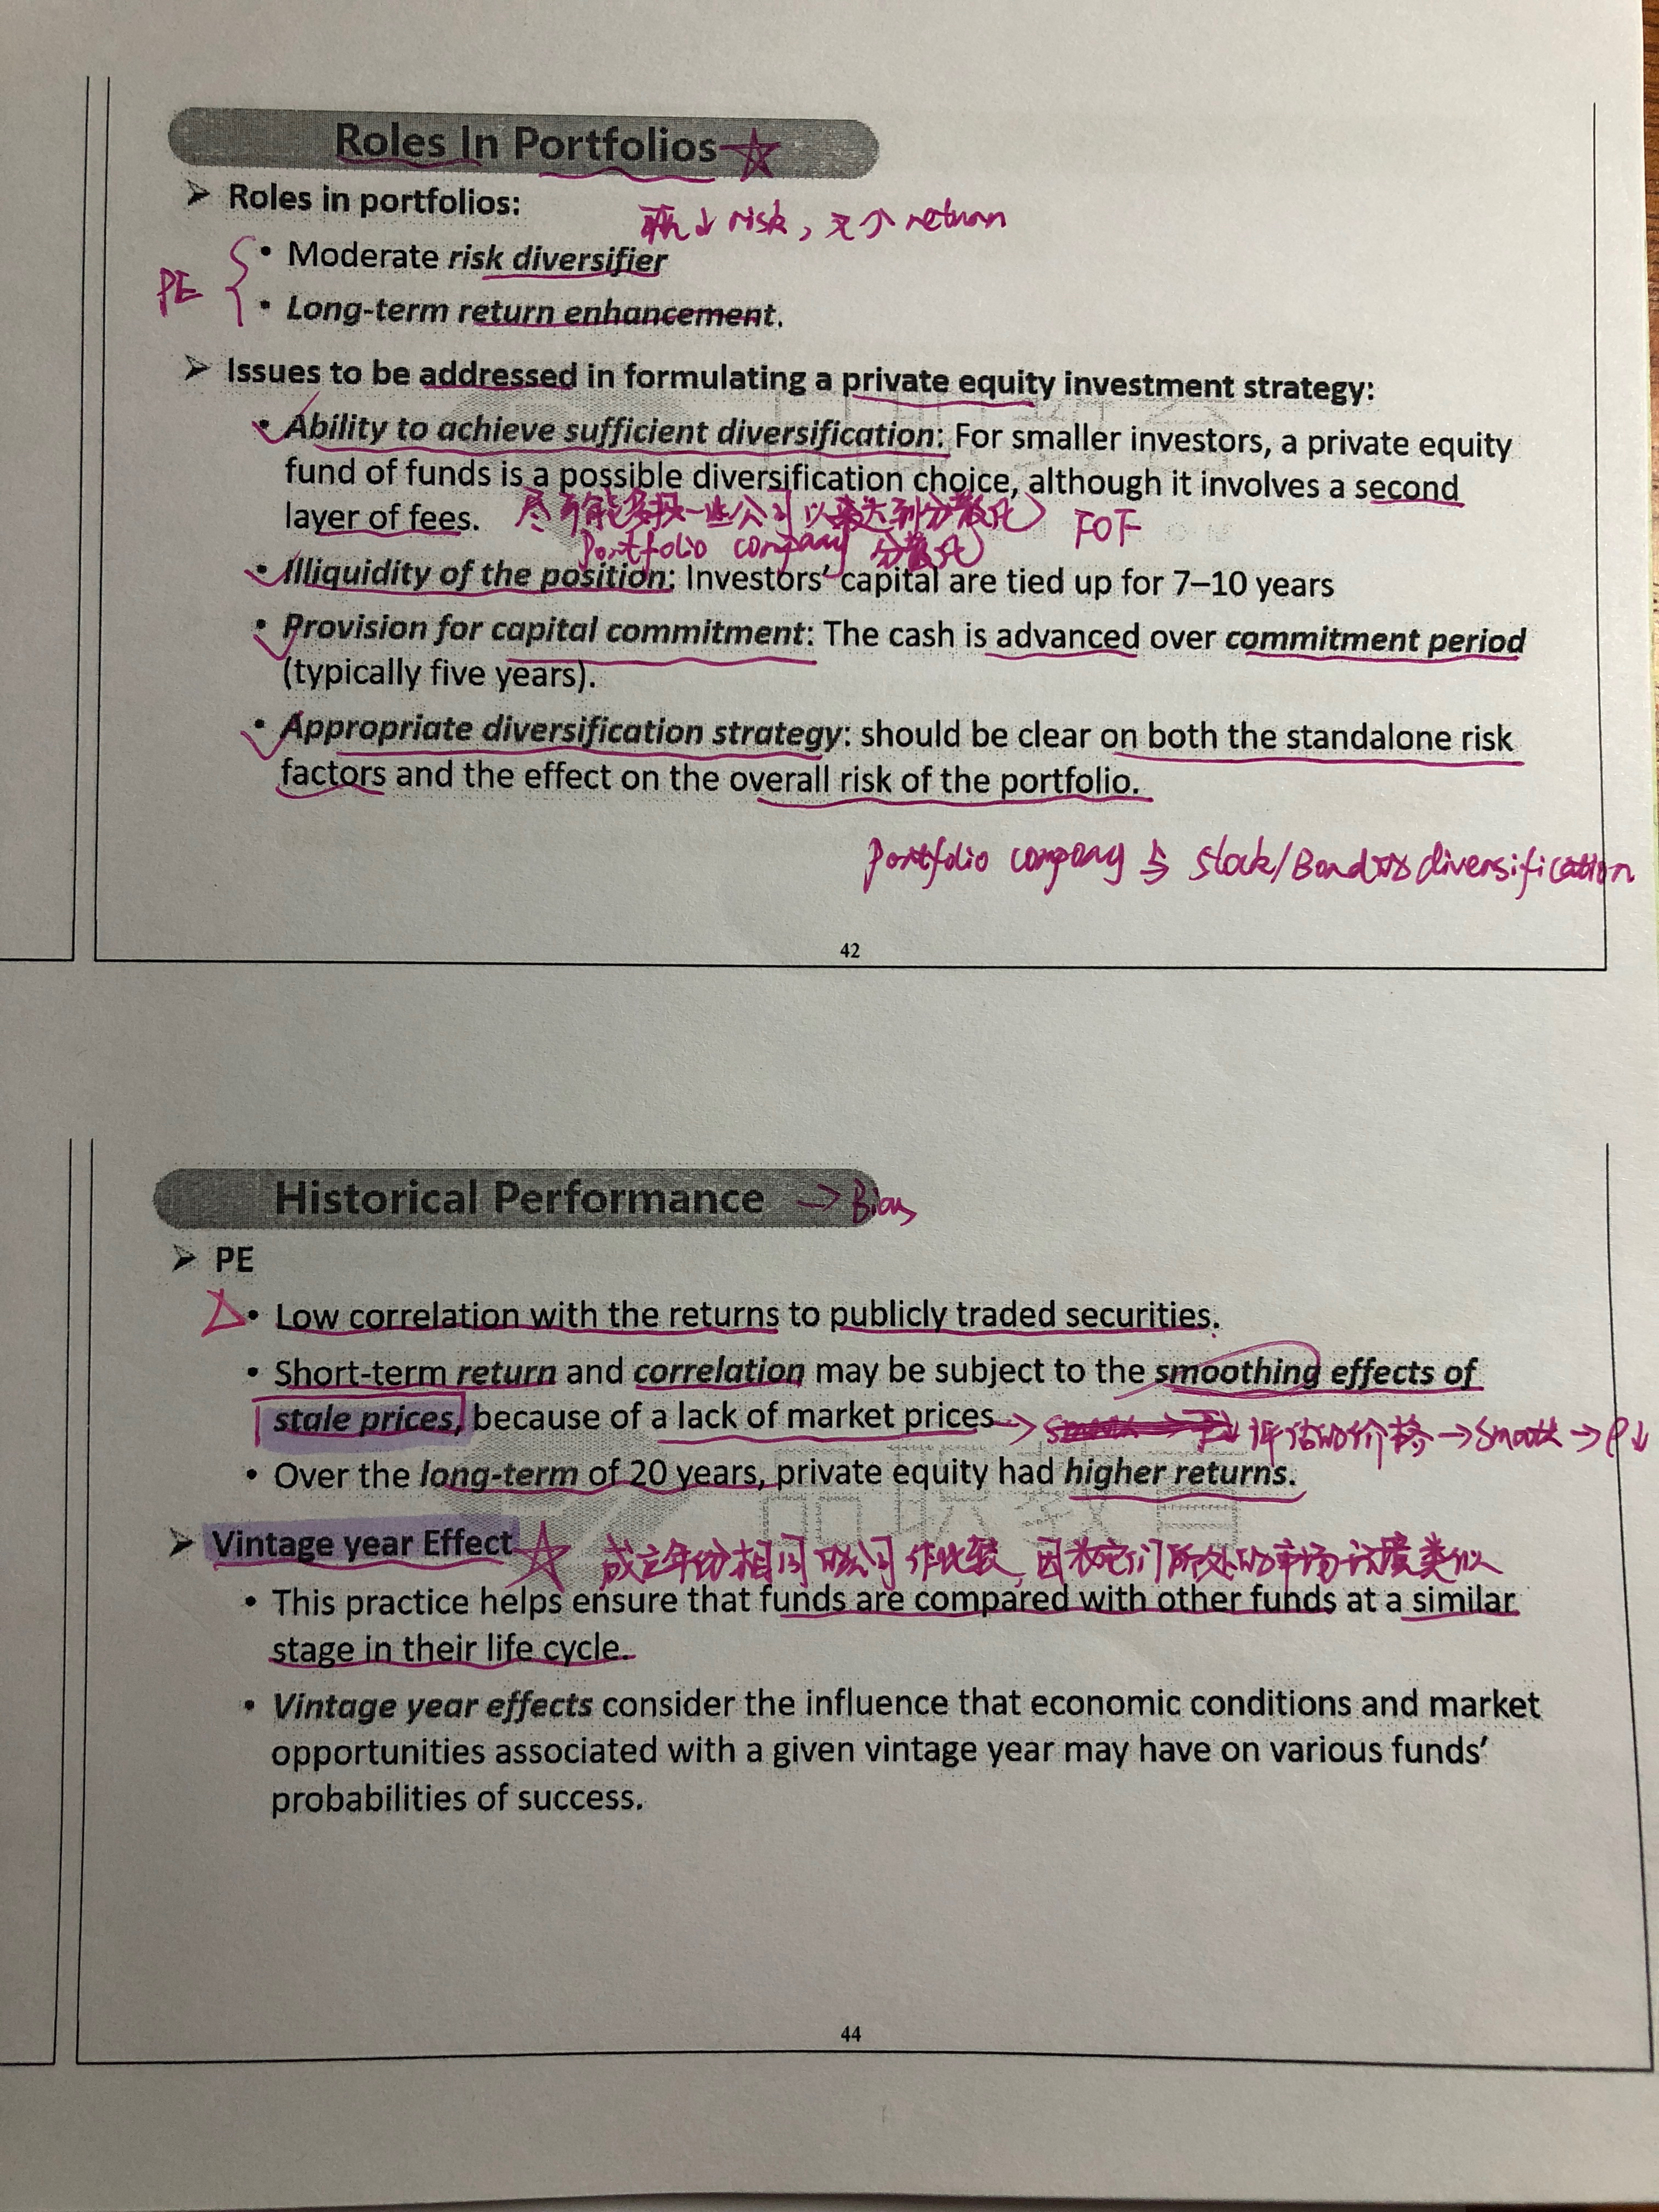 Roles In Portfolios
➢ Roles in portfolios:
↓ risk, ↑ return
PE
• Moderate risk diversifier
• Long-term return enhancement.
➢ Issues to be addressed in formulating a private equity investment strategy:
• Ability to achieve sufficient diversification: For smaller investors, a private equity
fund of funds is a possible diversification choice, although it involves a second
layer of fees.
尽可能多投一些公司以达到分散化 FOF
Portfolio company 分散化
• Illiquidity of the position: Investors' capital are tied up for 7–10 years
• Provision for capital commitment: The cash is advanced over commitment period
(typically five years).
• Appropriate diversification strategy: should be clear on both the standalone risk
factors and the effect on the overall risk of the portfolio.
Portfolio company 与 Stock/Bond diversification
42
Historical Performance → Bias
➢ PE
• Low correlation with the returns to publicly traded securities.
• Short-term return and correlation may be subject to the smoothing effects of
stale prices, because of a lack of market prices → 评估的价格 → Smooth → ρ↓
• Over the long-term of 20 years, private equity had higher returns.
品职教育
➢ Vintage year Effect 成立年份相同的公司作比较, 因为它们所处的市场环境类似
• This practice helps ensure that funds are compared with other funds at a similar
stage in their life cycle.
• Vintage year effects consider the influence that economic conditions and market
opportunities associated with a given vintage year may have on various funds'
probabilities of success.
44